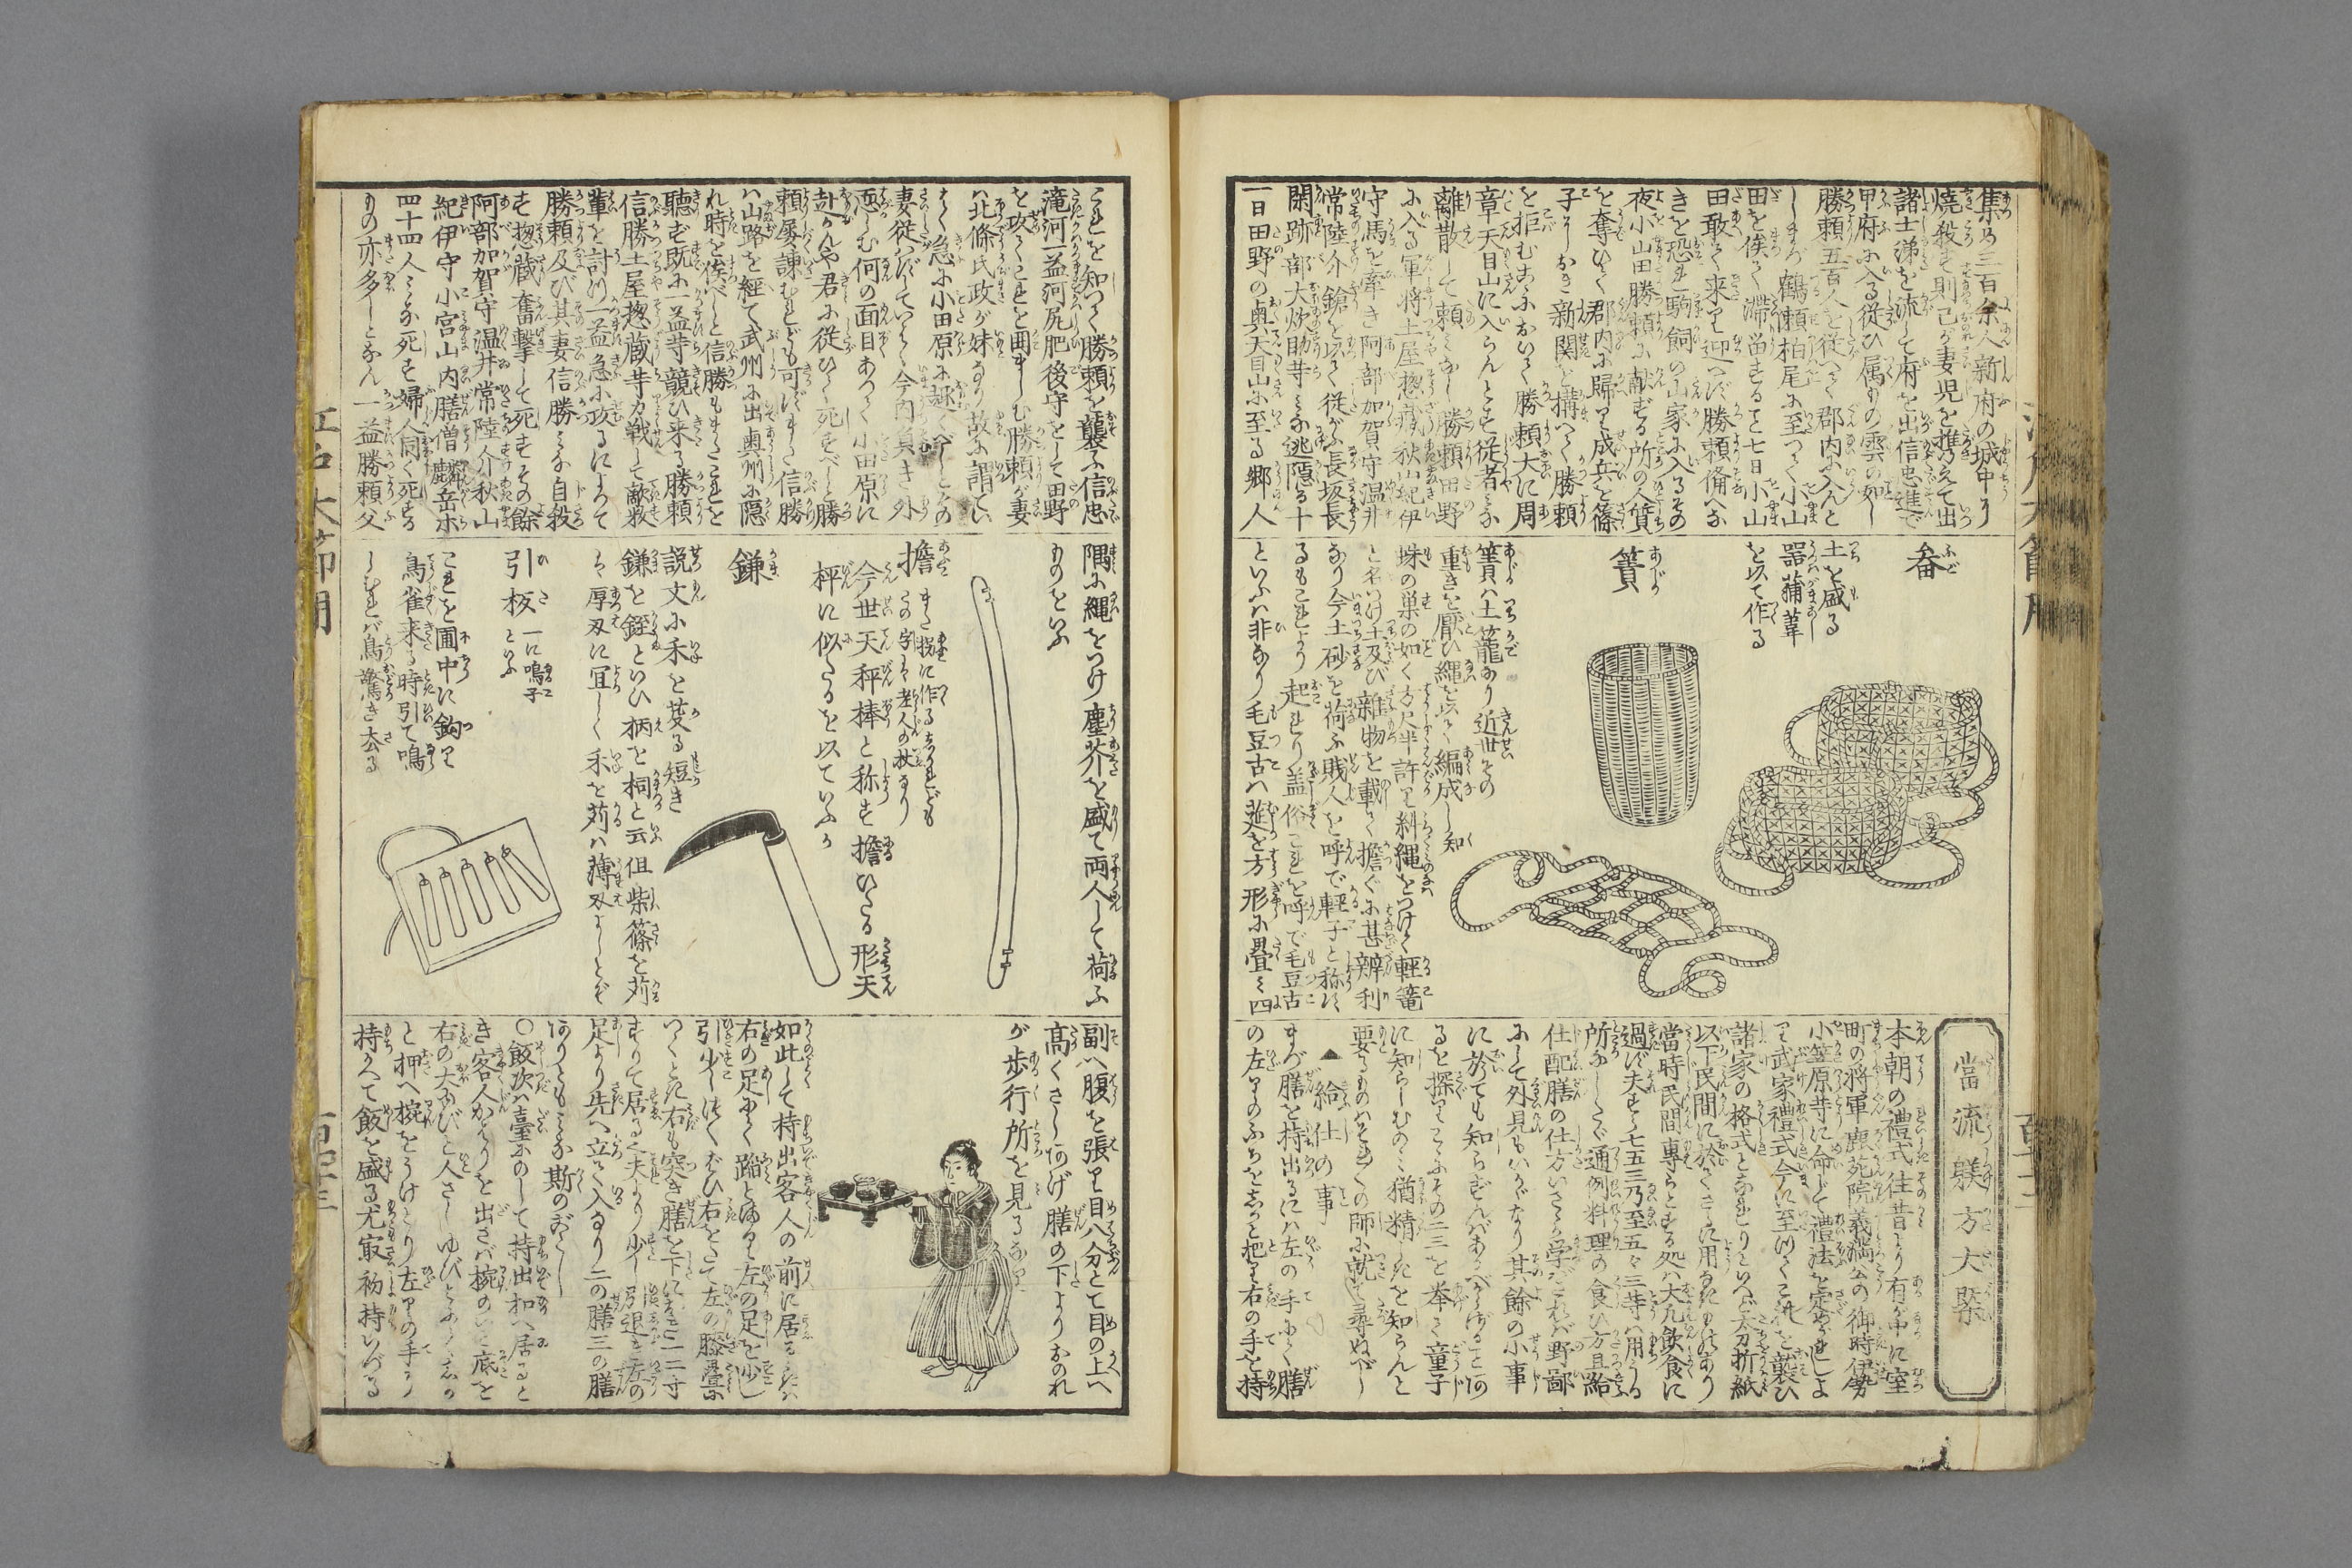 新府の城中
焼殺す則己が妻児を携えて出
諸士涕を流して府を出信忠進で
甲府に入る従ひ属もの雲の如し
勝頼五百人を従へて郡内に入んと
鶴頼柏尾に至つて小山
田を俟て滞留すること七日小山
田敢て来り迎へず勝頼備へな
きを恐れ駒飼の山家に入るその
夜小山田勝頼に献ずる所の人質
を奪ひて郡内に帰り成兵を篠
子にしおき新関を搆へて勝頼
を拒むこゝにおいて勝頼大に周
章天目山に入らんとす従者みな
離散して頼みなし勝頼田野
に入る軍将土屋惣蔵秋山紀伊
守馬を牽き阿部加賀守温井
常陸介鎗を以て従がふ長坂長
閑跡部大炊助等みな逃隠る十
一日田野の奥天目山に至る郷人
畚
土を盛る
器蒲葦
を以て作る
簣
簣ハ土籠なり近世その
重きを厭ひ縄を以て編成し知
蛛の巣の如く方尺半許り糾縄をつけて軽篭
と名つけ土及び雑物を載て擔ぐに甚辨利
なり今土砂を荷ふ賎人を呼で軽子と称す
るもこれより起れり盖俗これを呼で毛豆古
といふハ非なり毛豆古ハ莚を方形に畳み四
當流躾方大槩
本朝の禮式往昔より有が中に室
町の将軍鹿苑院義満公の御時伊勢
小笠原等に命じて禮法を定めがれしよ
り武家禮式今に至つてこれを襲ひ
諸家の格式となれりといへども折紙
以下民間に於てさして用なきものあり
當時民間專らとする処ハ大凡飲食に
過ず夫すら七五三乃至五々三等ハ用うる
所なしたゞ通例料理の食ひ方且給
仕配膳の仕方いさゝか学ざれバ野鄙
にして外見もいかゞなり其餘の小事
に於ても知らずんバあるべからざること
るを探りてこゝにその二三を挙て童子
に知らしむのミ猶精しきを知らんと
要るものハそれ〳〵の師に就て尋ぬべし
▲給仕の事
まづ膳を持出るにハ左の手にて膳
の左りのふちをしかと把り右の手を持
これを知つて勝頼を襲ふ信忠
滝河一益河尻肥後守をして田野
を攻てこれを囲ましむ勝頼が妻
ハ北條氏政が妹なり故に謂てい
はく急に小田原に趣くべしとその
妻従ハずしていはく今内負き外
恧む何の面目あつて小田原に
赴かんや君に従ひて死すべしと勝
頼屡諌むれども可ずまた信勝
ハ山路を経て武州に出奥州に隠
れ時を俟べしと信勝もまたこれを
聴ず既に一益等競ひ来る勝頼
信勝土屋惣蔵等力戦して敵数
輩を討つ一益急に攻るによつて
勝頼及び其妻信勝みな自殺
す惣蔵奮撃して死すその餘
阿部加賀守温井常陸介秋山
紀伊守小宮山内膳僧麟岳等
四十四人みな死す婦人同く死する
もの亦多しとなん一益勝頼父
隅に縄をつけ塵芥を盛て両人して荷ふ
ものをいふ
擔
また拐に作るされども
この字ハ老人の杖なり
今世天秤棒と称す擔ひたる形天
秤に似たるを以ていふか
鎌
説文に禾を芟る短き
鎌を銍といひ柄を枱と云但柴篠を苅
るハ厚刄に宜しく禾を苅ハ薄刄よしとぞ
引板
一に鳴子
といふ
これを圃中に鈎り
鳥雀来る時引て鳴
しむれバ鳥驚き去る
副へ腹を張り目八分とて目の上へ
高くさしあげ膳の下よりおのれ
が歩行所を見るなり
如此して持出客人の前に居るときハ
右の足にて踏とまり左の足を少し
引少しばかりひざ右をたて左の膝を畳に
つくときに右も突き膳を下に置二三寸
すりて居る夫より少し引退き左の
足より先へ立て入るなり二の膳三の膳
ありともみな斯のおとし
○飯次ハ臺にのして持出扣へ居ると
き客人かはりを出さバ椀のいと底を
右の大ゆびと人さしゆびとにてしか
と押へ椀をうけとり左りの手に
持かへて飯を盛る尤㝡初持いづる